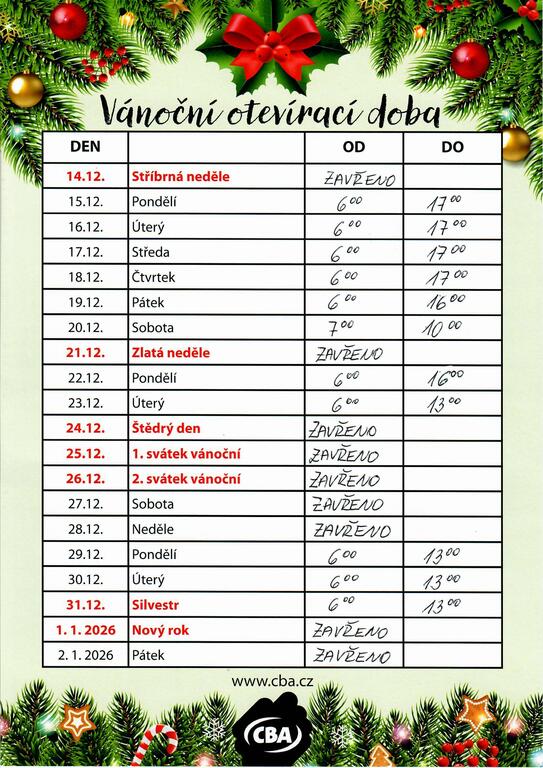 Vánoční otevírací doba
DEN OD DO
14.12. Stříbrná neděle ZAVŘENO
15.12. Pondělí 6⁰⁰ 17⁰⁰
16.12. Úterý 6⁰⁰ 17⁰⁰
17.12. Středa 6⁰⁰ 17⁰⁰
18.12. Čtvrtek 6⁰⁰ 17⁰⁰
19.12. Pátek 6⁰⁰ 16⁰⁰
20.12. Sobota 7⁰⁰ 10⁰⁰
21.12. Zlatá neděle ZAVŘENO
22.12. Pondělí 6⁰⁰ 16⁰⁰
23.12. Úterý 6⁰⁰ 13⁰⁰
24.12. Štědrý den ZAVŘENO
25.12. 1. svátek vánoční ZAVŘENO
26.12. 2. svátek vánoční ZAVŘENO
27.12. Sobota ZAVŘENO
28.12. Neděle ZAVŘENO
29.12. Pondělí 6⁰⁰ 13⁰⁰
30.12. Úterý 6⁰⁰ 13⁰⁰
31.12. Silvestr 6⁰⁰ 13⁰⁰
1. 1. 2026 Nový rok ZAVŘENO
2. 1. 2026 Pátek ZAVŘENO
www.cba.cz
CBA